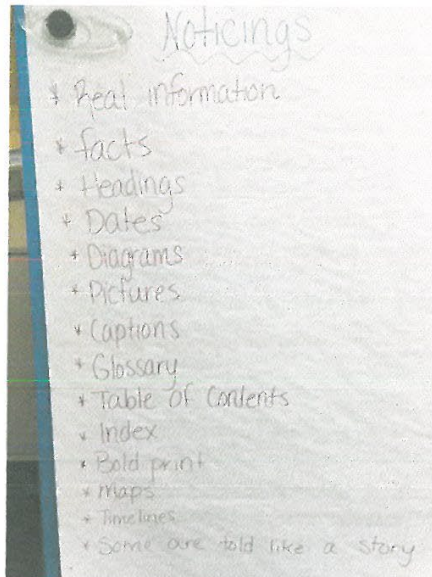 Noticings
* Real information
* facts
* Headings
* Dates
* Diagrams
* Pictures
* Captions
* Glossary
* Table of Contents
* Index
* Bold print
* maps
* Timelines
* Some are told like a story